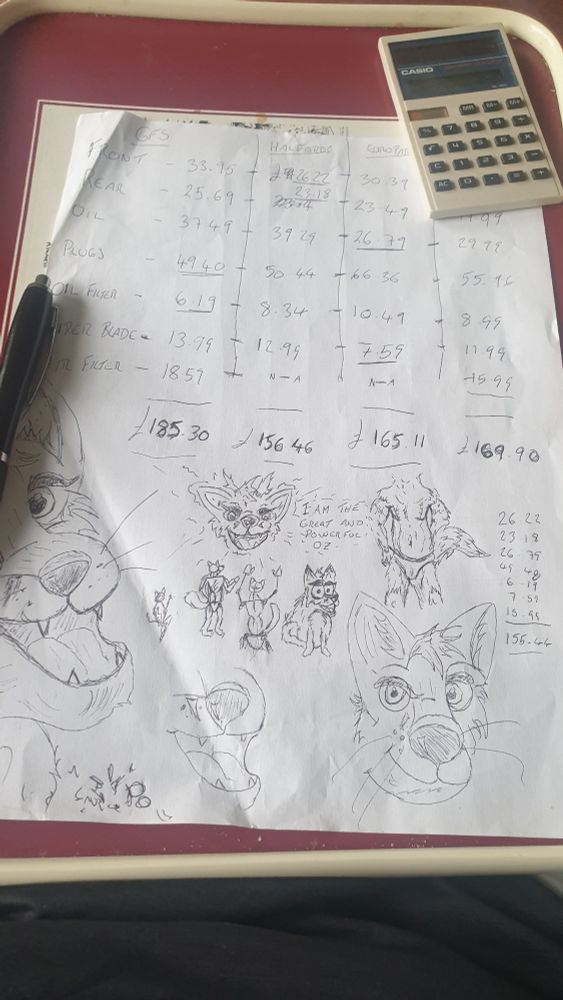 GFS HALFORDS
FRONT - 33.95 - 26.22 - 30.39
REAR - 25.69 - 23.18 - 23.49
OIL - 37.49 - 39.29 - 26.79 - 29.99
PLUGS - 49.40 - 50.44 - 66.36 - 55.96
OIL FILTER - 6.19 - 8.34 - 10.49 - 8.99
BLADE - 13.99 - 12.99 - 7.59 - 11.99
FILTER - 18.59 - N-A - N-A - 15.99
£185.30 £156.46 £165.11 £169.90
I AM THE
GREAT AND
POWERFUL
OZ
26.22
23.18
26.79
49.40
6.19
7.59
15.99
155.44
CASIO
MR M- M+
% 7 8 9 ÷
√ 4 5 6 ×
C 1 2 3 -
AC 0 · = +